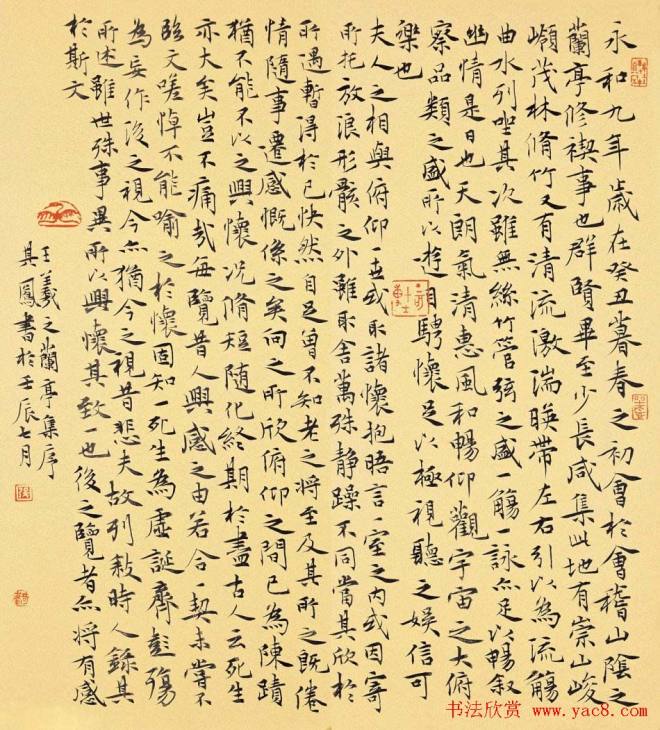 永和九年歲在癸丑暮春之初會於會稽山陰之
蘭亭修禊事也群賢畢至少長咸集此地有崇山峻
嶺茂林脩竹又有清流激湍暎帶左右引以為流觴
曲水列坐其次雖無絲竹管弦之盛一觴一詠亦足以暢敘
幽情是日也天朗氣清惠風和暢仰觀宇宙之大俯
察品類之盛所以遊目騁懷足以極視聽之娛信可
樂也
夫人之相與俯仰一世或取諸懷抱晤言一室之內或因寄
所托放浪形骸之外雖取舍萬殊静躁不同當其欣於
所遇暫得於己快然自足曾不知老之將至及其所之既倦
情隨事遷感慨係之矣向之所欣俯仰之間已為陳蹟
猶不能不以之興懷况脩短隨化終期於盡古人云死生
亦大矣豈不痛哉每覽昔人興感之由若合一契未嘗不
臨文嗟悼不能喻之於懷固知一死生為虛誕齊彭殤
為妄作後之視今亦猶今之視昔悲夫故列敘時人錄其
所述雖世殊事異所以興懷其致一也後之覽者亦將有感
於斯文
王羲之蘭亭集序
其鳳書於壬辰七月
书法欣赏 www.yac8.com